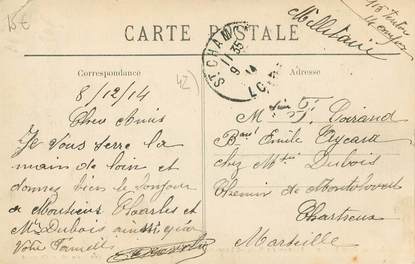 15€
CARTE POSTALE
Militaire
ST CHAMOND
9 35
11
14
LOIRE
Correspondance
Adresse
42
8/12/14
Cher Amis
Je vous serre la
main de loin et
donnez bien le bonjour
à Monsieur Charles et
Mr Dubois ainsi que
Votre Famille
F. Poirand
Emile Aycard
chez Dubois
Chemin de Montolivet
Chartreux
Marseille